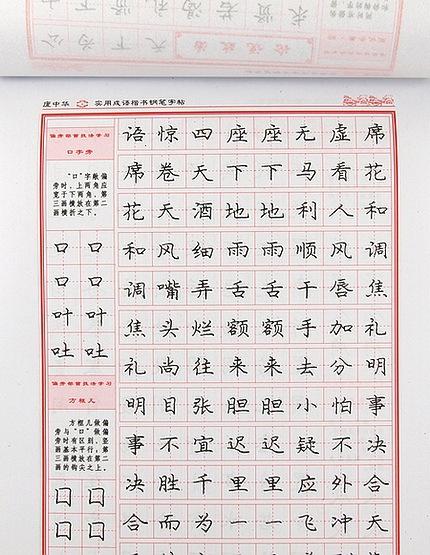 庞中华 实用成语楷书钢笔字帖
偏旁部首技法学习
口字旁
“口”字做偏
旁时，上两角应
宽于下两角，第
三画横放在第二
画横折之下。
口 口
口 口
叶 叶
吐 吐
偏旁部首技法学习
方框儿
方框儿做偏
旁与“口”做偏
旁时有区别，竖
画基本平行，第
三画横放在第二
画的钩尖之上。
囗 囗
囗 囗
语 惊 四 座 座 无 虚 席
席 卷 天 下 下 马 看 花
花 天 酒 地 地 利 人 和
和 风 细 雨 雨 顺 风 调
调 嘴 弄 舌 舌 干 唇 焦
焦 头 烂 额 额 手 加 礼
礼 尚 往 来 来 去 分 明
明 目 张 胆 胆 小 怕 事
事 不 宜 迟 迟 疑 不 决
决 胜 千 里 里 应 外 合
合 而 为 一 一 飞 冲 天